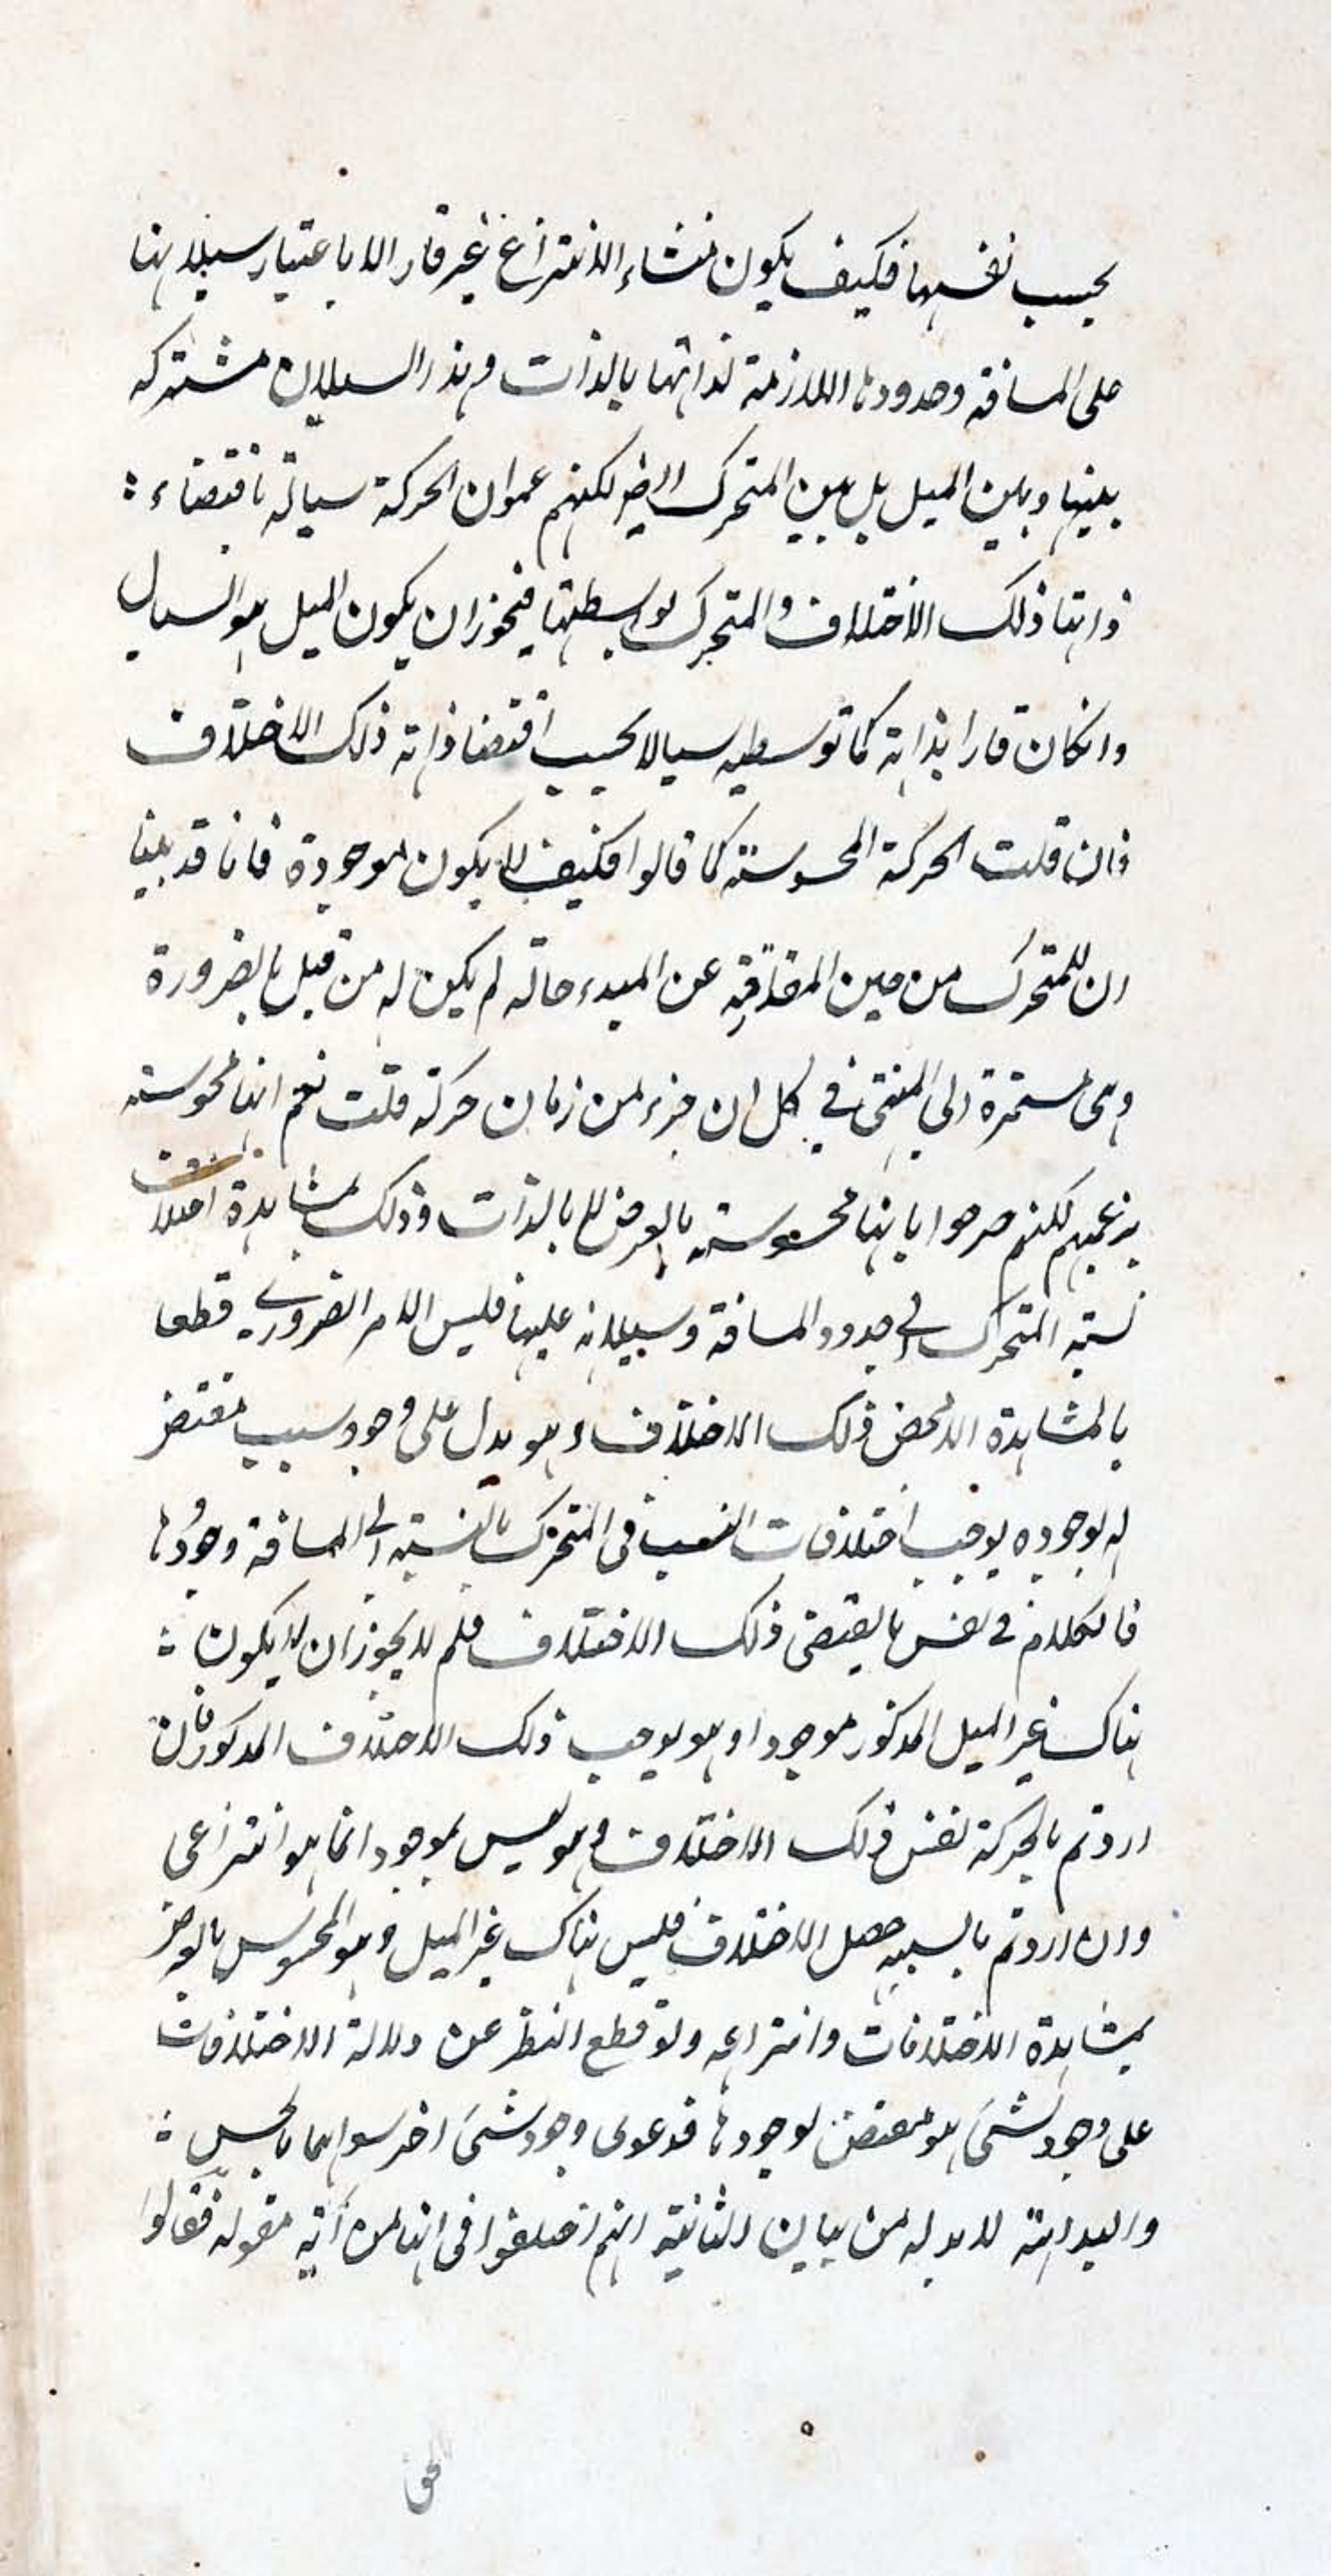 بحسب نفسها فكيف يكون منشاء الانتزاع غير قار الا باعتبار سيلانها
على المسافة وحدودها اللازمة لذاتها بالذات وهذا السيلان مشتركه
بينها وبين الميل بل بين المتحرك ايضا لكنهم زعموا ان الحركة سيالة باقتضاء
ذاتها ذلك الاختلاف والمتحرك بواسطتها فيجوز ان يكون الميل هو السيال
وانكان قارا بذاته كما توسطيه سيالا بحسب اقتضا ذاته ذلك الاختلاف
فان قلت الحركة المحسوسة كما قالوا فكيف لا يكون موجودة فانا قد بينا
ان للمتحرك من حين المفارقة عن المبدء حالة لم يكن له من قبل بالضرورة
وهى مستمرة الى المنتهى في كل ان جزء من زمان حركة قلت نعم انها محسوسة
بزعمهم لكنهم صرحوا بانها محسوسة بالعرض لا بالذات وذلك بمشاهدة اختلاف
نسبة المتحرك الى حدود المسافة وسيلانه عليها فليس الامر الضروري قطعا
بالمشاهدة الا محض ذلك الاختلاف وهو يدل على وجود سبب مقتض
له بوجوده يوجب اختلافات النسب في المتحرك بالنسبة الى المسافة وحدودها
فالكلام في نفس ما يقتضى ذلك الاختلاف فلم لا يجوز ان لا يكون
هناك غير الميل المذكور موجودا وهو يوجب ذلك الاختلاف المذكور فان
اردتم بالحركة نفس ذلك الاختلاف فهو ليس بموجود انما هو انتزاعى
وان اردتم ما بسببه حصل الاختلاف فليس هناك غير الميل وهو المحسوس بالعرض
بمشاهدة الاختلافات وانتزاعه ولو قطع النظر عن دلالة الاختلافات
على وجود شئ هو مقتض لوجودها فدعوى وجود شئ اخر سواهما بالحس
والبداهة لا بد له من بيان الثانية انهم اختلفوا في انها من اية مقولة فقالوا